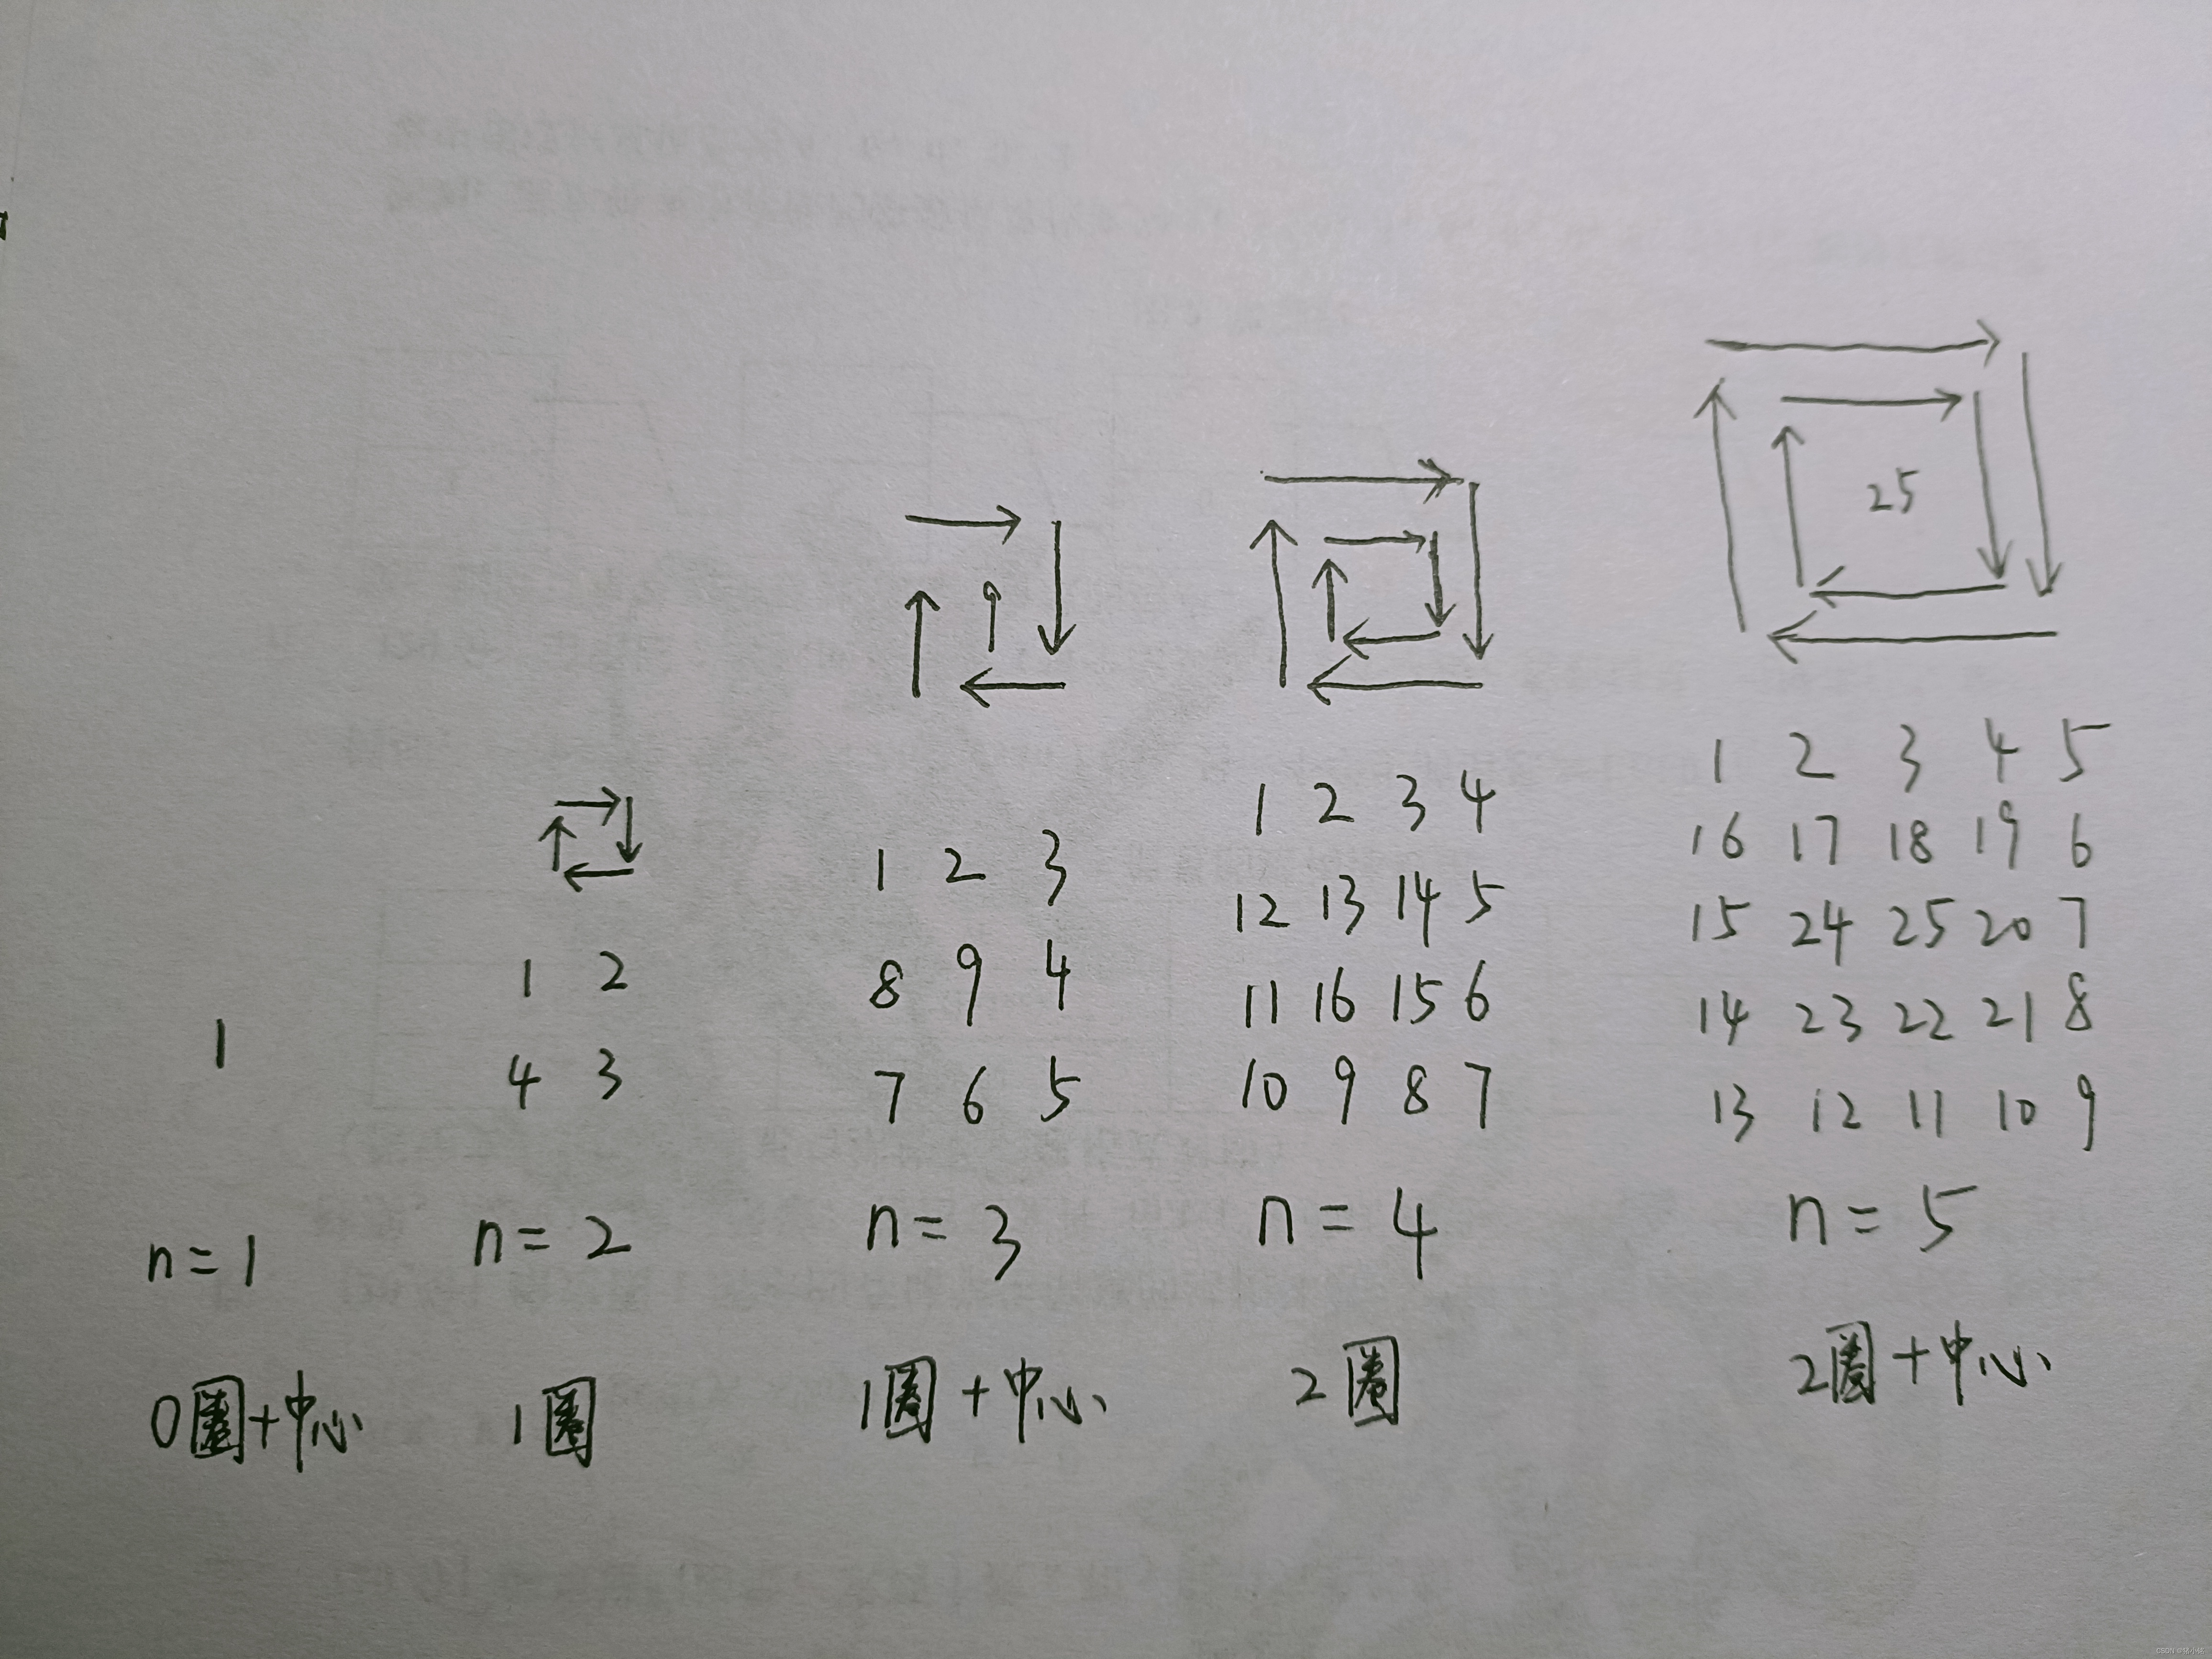 1
n=1
0圈+中心
1 2
4 3
n=2
1圈
9
1 2 3
8 9 4
7 6 5
n=3
1圈+中心
1 2 3 4
12 13 14 5
11 16 15 6
10 9 8 7
n=4
2圈
25
1 2 3 4 5
16 17 18 19 6
15 24 25 20 7
14 23 22 21 8
13 12 11 10 9
n=5
2圈+中心